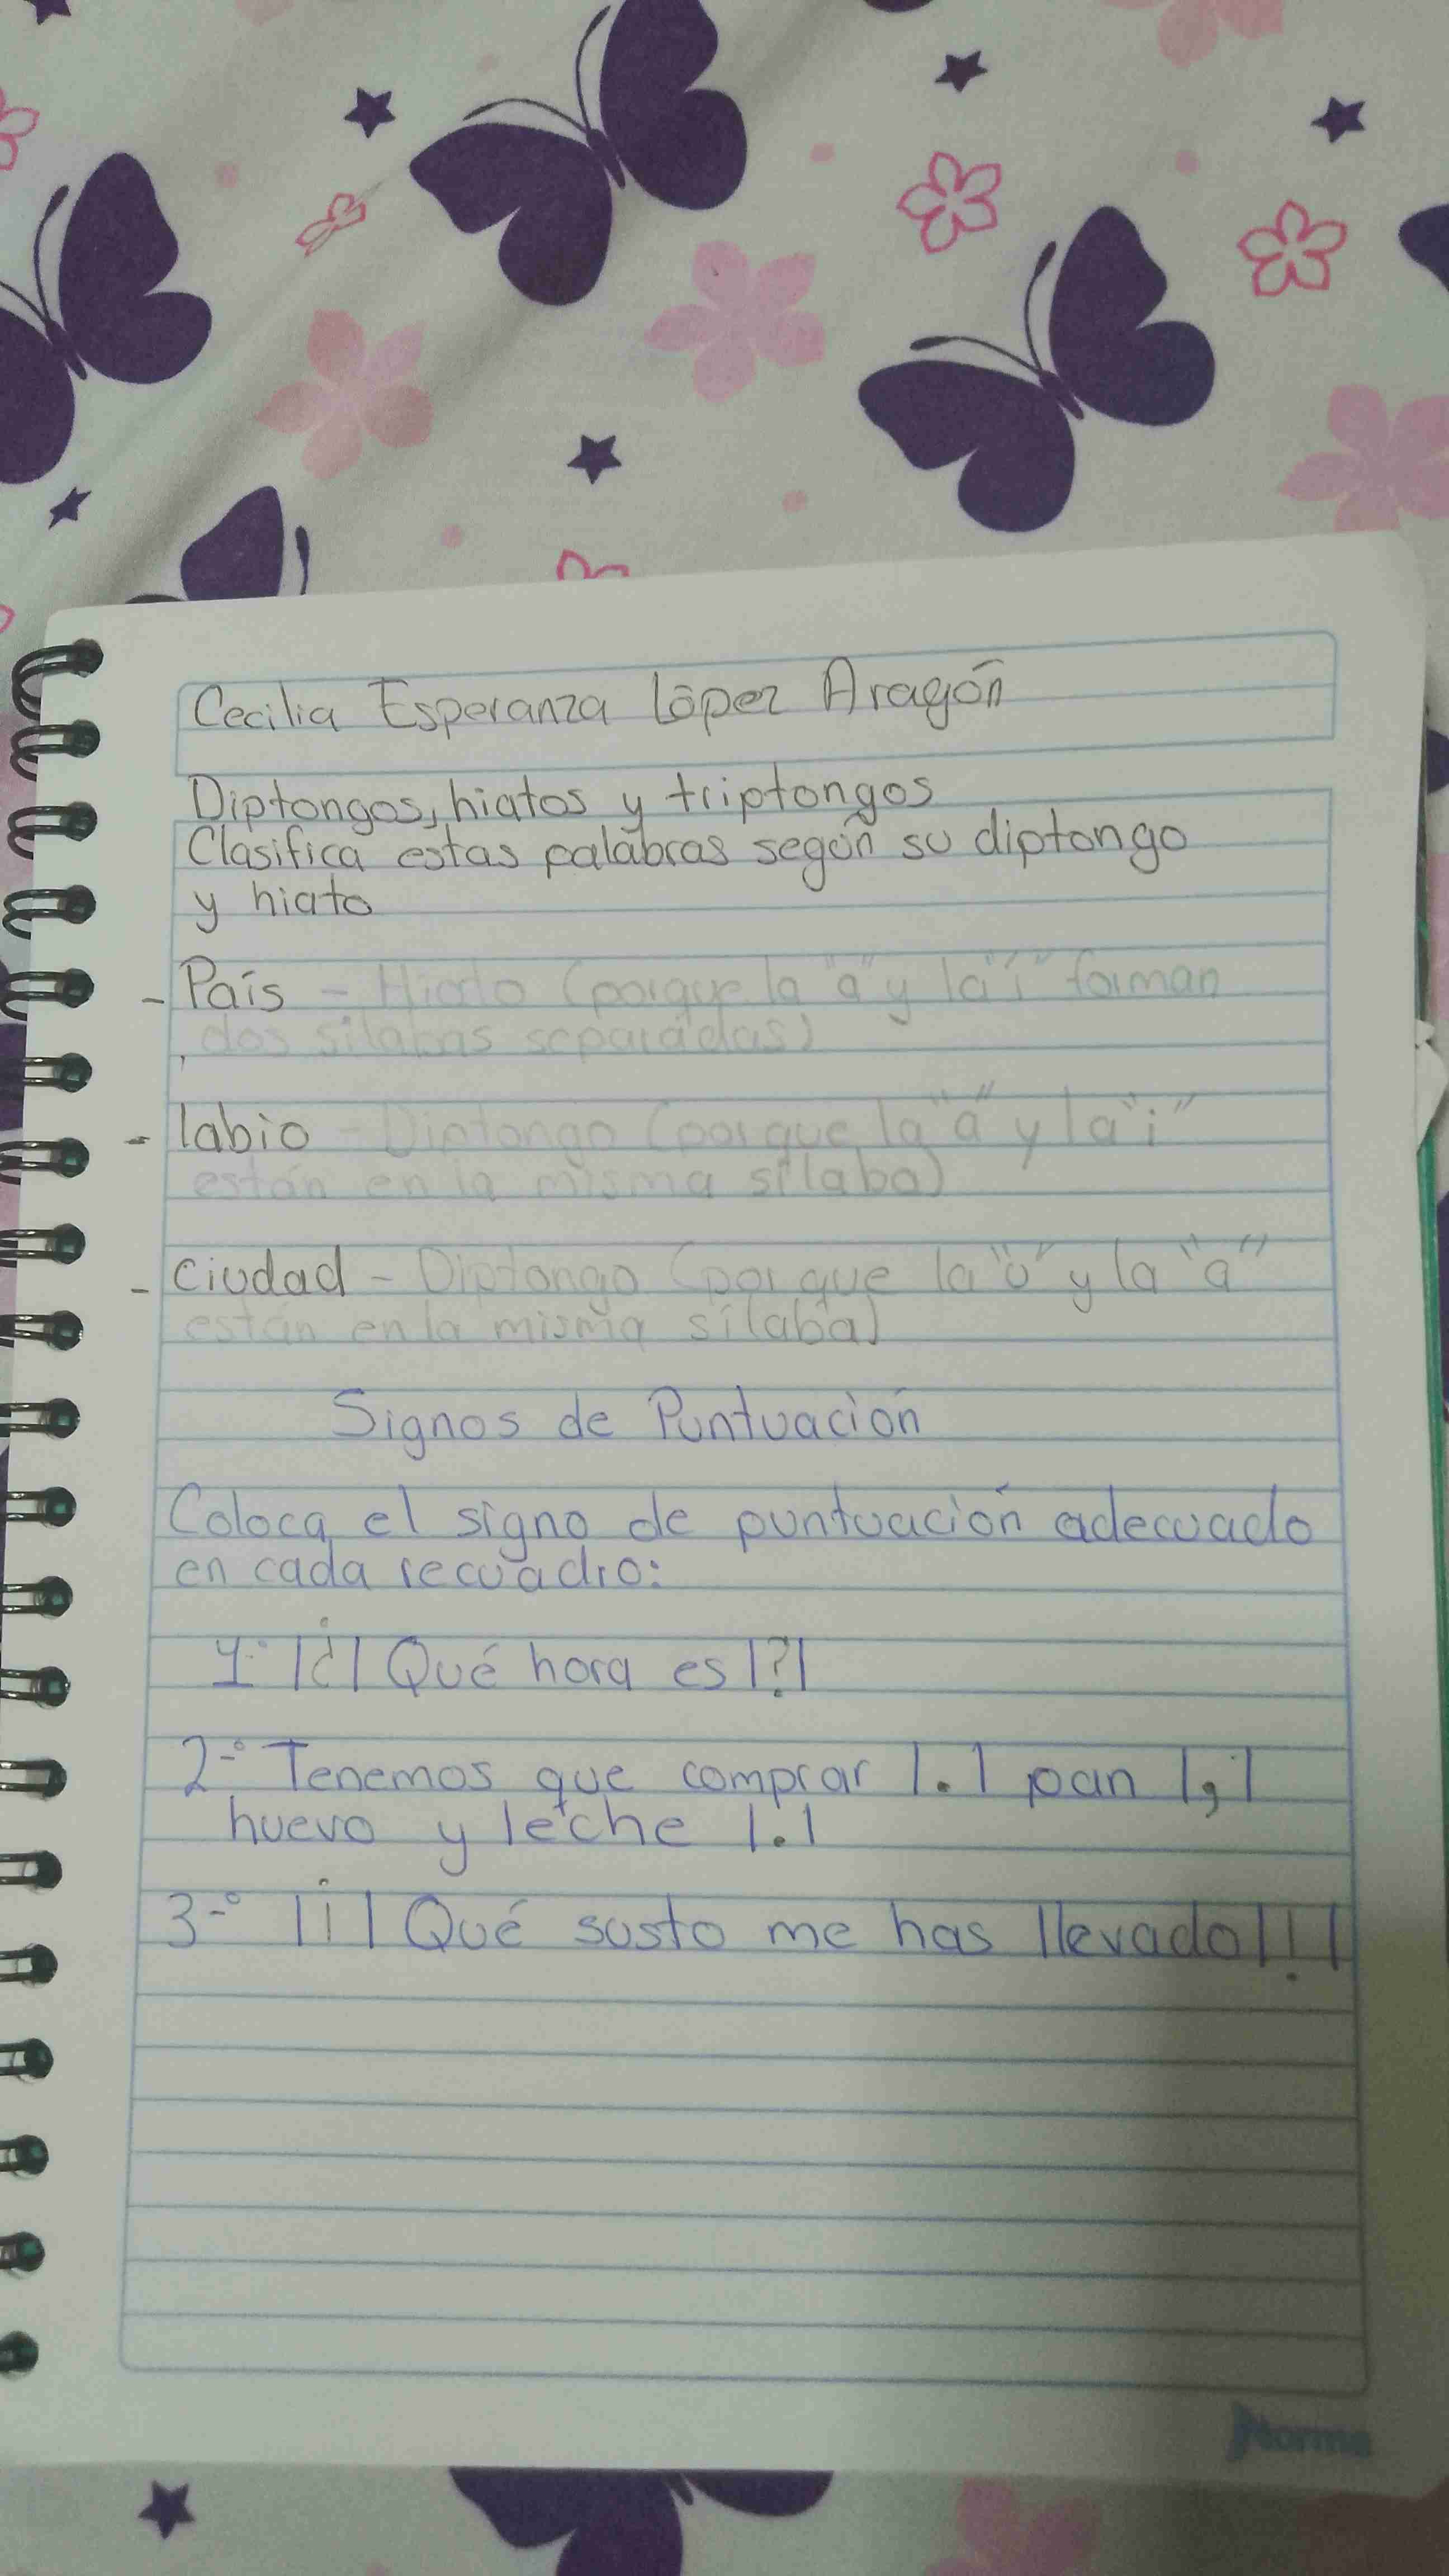 Cecilia Esperanza López Aragón
Diptongos, hiatos y triptongos
Clasifica estas palabras según su diptongo
y hiato
- País - Hiato (porque la "a" y la "í" forman
dos sílabas separadas)
- labio - Diptongo (porque la "a" y la "i"
están en la misma sílaba)
- ciudad - Diptongo (porque la "u" y la "a"
están en la misma sílaba)
Signos de Puntuación
Coloca el signo de puntuación adecuado
en cada recuadro:
1-° |¿| Qué hora es |?|
2-° Tenemos que comprar |.| pan |,|
huevo y leche |.|
3-° |¡| Qué susto me has llevado |!|
Norma